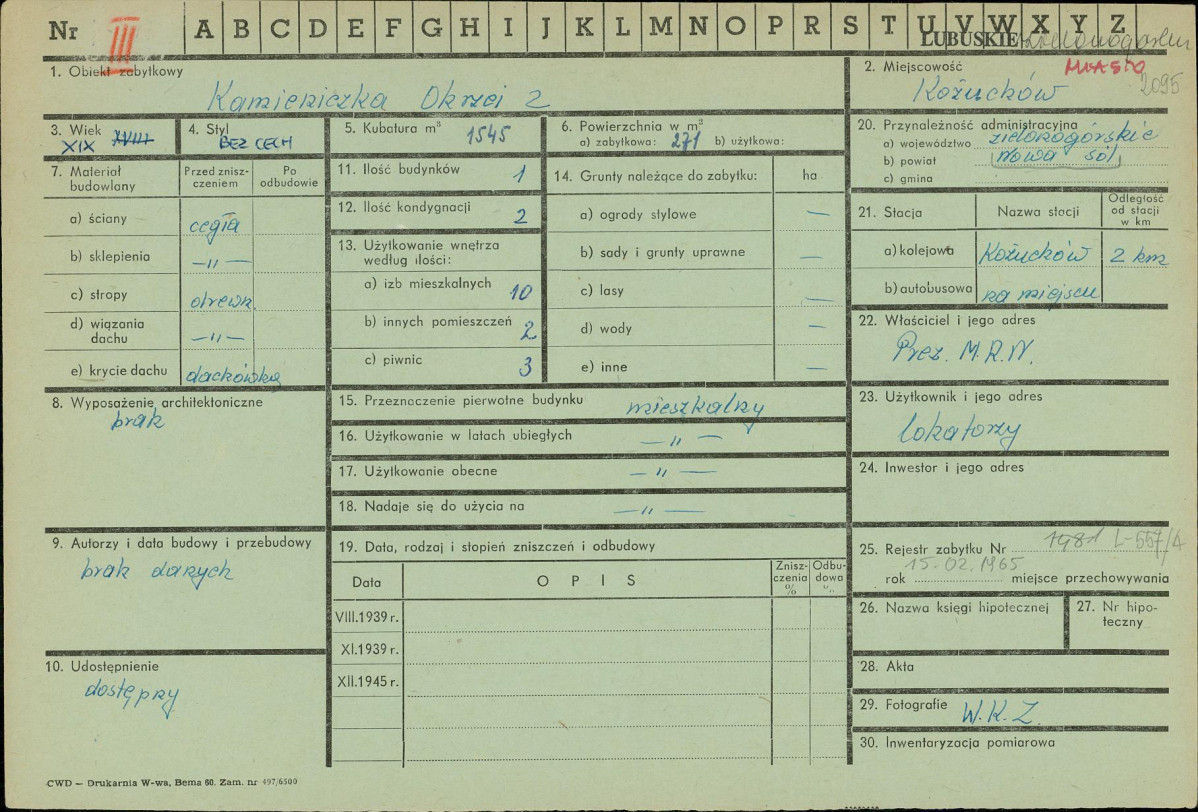 Nr III A B C D E F G H I J K L M N O P R S T U V W X Y Z
LUBUSKIE
MIASTO
2095
1. Obiekt zabytkowy
Kamieniczka Okrzei 2
2. Miejscowość
Kożuchów
3. Wiek
XIX XVIII
4. Styl
BEZ CECH
5. Kubatura m³ 1545
6. Powierzchnia w m²
a) zabytkowa: 271 b) użytkowa:
7. Materiał budowlany
Przed zniszczeniem
Po odbudowie
a) ściany cegła
b) sklepienia —„—
c) stropy drewn.
d) wiązania dachu —„—
e) krycie dachu dachówka
8. Wyposażenie architektoniczne
brak
9. Autorzy i data budowy i przebudowy
brak danych
10. Udostępnienie
dostępny
11. Ilość budynków 1
12. Ilość kondygnacji 2
13. Użytkowanie wnętrza
według ilości:
a) izb mieszkalnych 10
b) innych pomieszczeń 2
c) piwnic 3
14. Grunty należące do zabytku: ha
a) ogrody stylowe —
b) sady i grunty uprawne —
c) lasy —
d) wody —
e) inne —
15. Przeznaczenie pierwotne budynku mieszkalny
16. Użytkowanie w latach ubiegłych —„—
17. Użytkowanie obecne —„—
18. Nadaje się do użycia na —„—
19. Data, rodzaj i stopień zniszczeń i odbudowy
Data OPIS Zniszczenia % Odbudowa %
VIII.1939 r.
XI.1939 r.
XII.1945 r.
20. Przynależność administracyjna
a) województwo zielonogórskie
b) powiat Nowa Sól
c) gmina
21. Stacja Nazwa stacji Odległość od stacji w km
a) kolejowa Kożuchów 2 km
b) autobusowa na miejscu
22. Właściciel i jego adres
Prez. M.R.N.
23. Użytkownik i jego adres
lokatorzy
24. Inwestor i jego adres
25. Rejestr zabytku Nr 1981 L-557/A
15.02.1965
rok miejsce przechowywania
26. Nazwa księgi hipotecznej
27. Nr hipoteczny
28. Akta
29. Fotografie W.K.Z.
30. Inwentaryzacja pomiarowa
CWD — Drukarnia W-wa, Bema 60. Zam. nr 497/6500